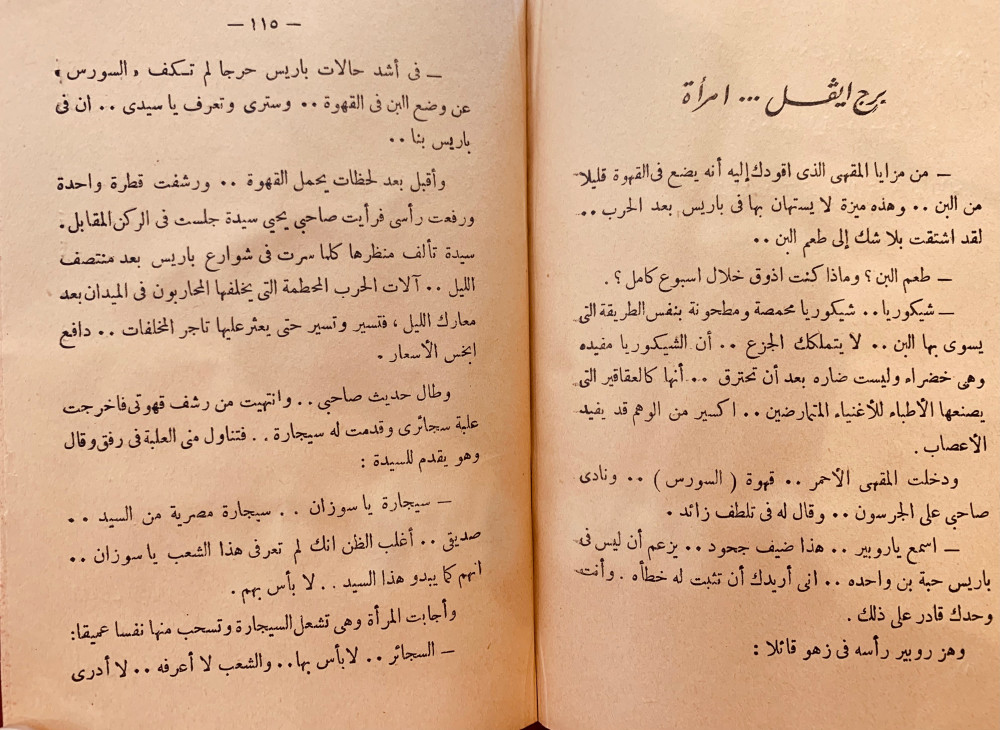 برج ايڤل ... امرأة
— من مزايا المقهى الذى اقودك إليه أنه يضع فى القهوة قليلا
من البن .. وهذه ميزة لا يستهان بها فى باريس بعد الحرب ..
لقد اشتقت بلا شك إلى طعم البن ..
— طعم البن ؟ وماذا كنت اذوق خلال اسبوع كامل ؟ .
— شيكوريا .. شيكوريا محمصة ومطحونة بنفس الطريقة التى
يسوى بها البن .. لا يتملكك الجزع .. أن الشيكوريا مفيده
وهى خضراء وليست ضاره بعد أن تحترق .. أنها كالعقاقير التى
يصنعها الأطباء للأغنياء المتمارضين .. اكسير من الوهم قد يفيد
الأعصاب .
ودخلت المقهى الأحمر .. قهوة ( السورس ) .. ونادى
صاحبي على الجرسون .. وقال له فى تلطف زائد .
— اسمع ياروبير .. هذا ضيف جحود .. يزعم أن ليس فى
باريس حبة بن واحده .. انى أريدك أن تثبت له خطأه . وأنت
وحدك قادر على ذلك .
وهز روبير رأسه فى زهو قائلا :
— ١١٥ —
— فى أشد حالات باريس حرجا لم تسكف « السورس »
عن وضع البن فى القهوة .. وسترى وتعرف يا سيدى .. ان فى
باريس بنا ..
وأقبل بعد لحظات يحمل القهوة .. ورشفت قطرة واحدة
ورفعت رأسى فرأيت صاحبي يحيي سيدة جلست فى الركن المقابل .
سيدة تألف منظرها كلما سرت فى شوارع باريس بعد منتصف
الليل .. آلات الحرب المحطمة التى يخلفها المحاربون فى الميدان بعد
معارك الليل ، فتسير وتسير حتى يعثر عليها تاجر المخلفات .. دافع
ابخس الأسعار .
وطال حديث صاحبي .. وانتهيت من رشف قهوتى فاخرجت
علبة سجائرى وقدمت له سيجارة .. فتناول منى العلبة فى رفق وقال
وهو يقدم للسيدة :
— سيجارة يا سوزان .. سيجارة مصرية من السيد ..
صديقى .. أغلب الظن انك لم تعرفى هذا الشعب يا سوزان ..
انهم كما يبدو هذا السيد .. لا بأس بهم .
وأجابت المرأة وهى تشعل السيجارة وتسحب منها نفسا عميقا:
— السجائر .. لا بأس بها .. والشعب لا أعرفه .. لا أدرى